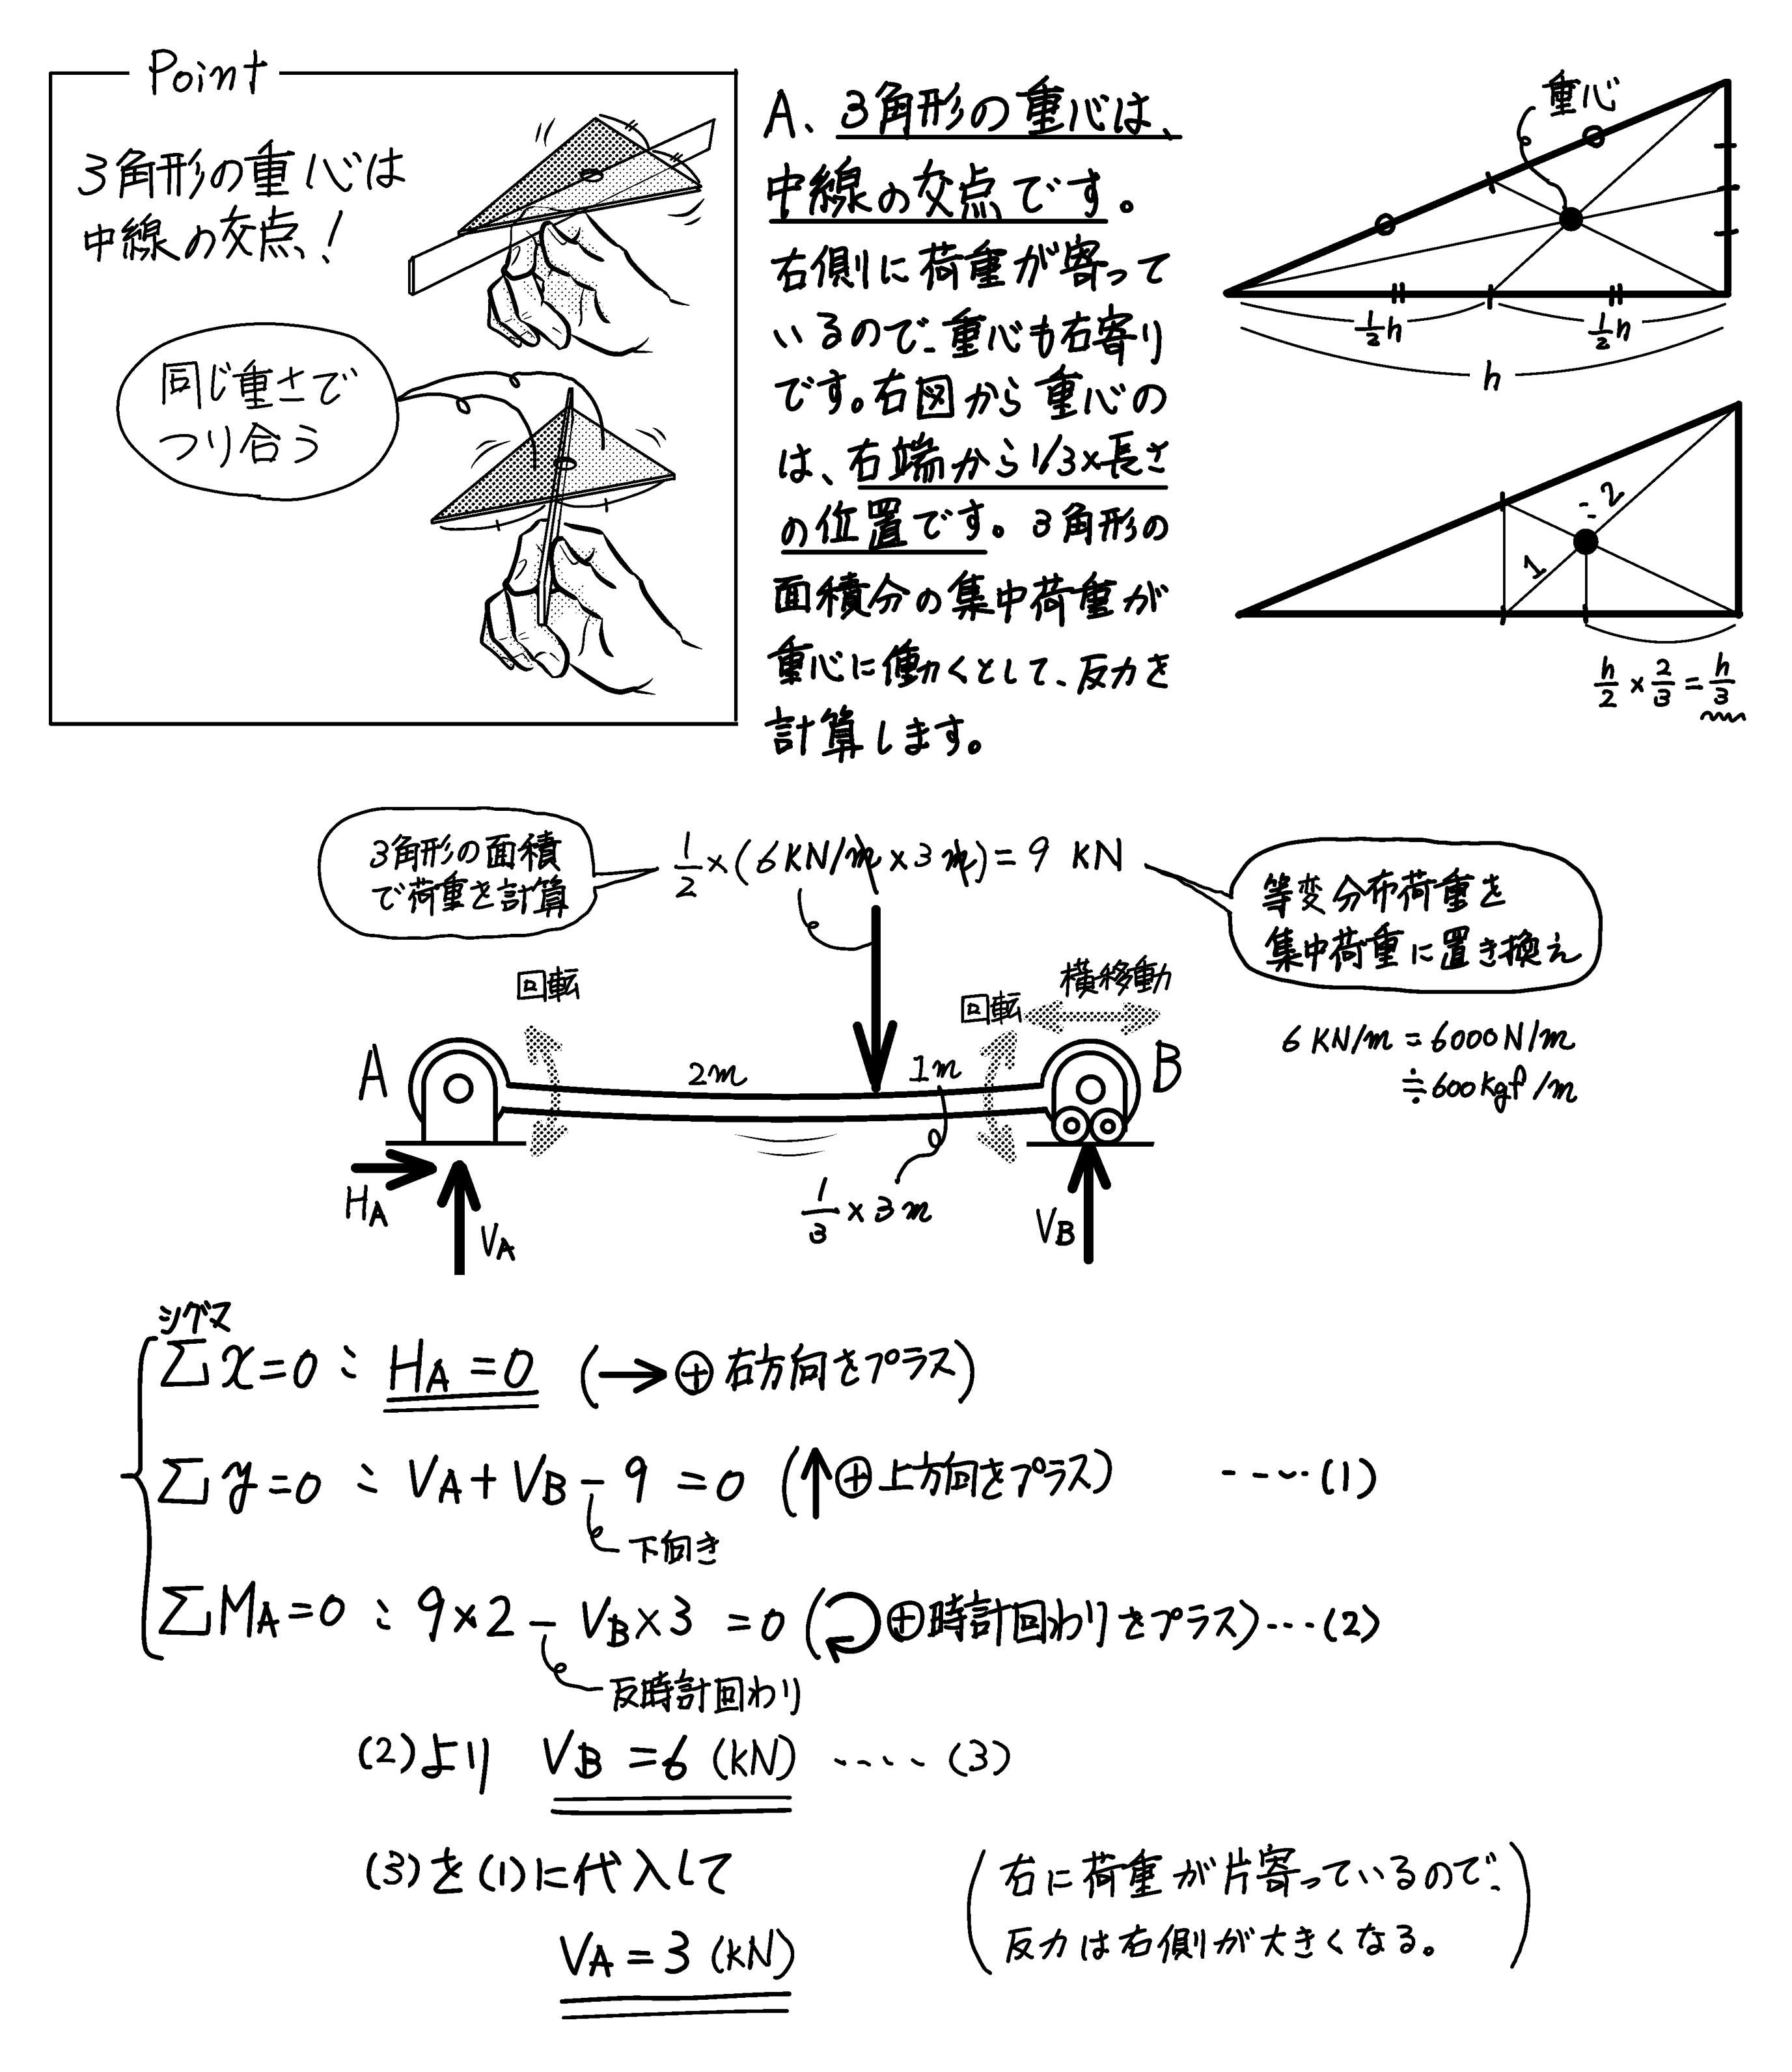 Point
3角形の重心は
中線の交点!
同じ重さで
つり合う
A、3角形の重心は、
中線の交点です。
右側に荷重が寄って
いるので、重心も右寄り
です。右図から重心の
は、右端から1/3×長さ
の位置です。3角形の
面積分の集中荷重が
重心に働くとして、反力を
計算します。
重心
1/2h
1/2h
h
1
:2
h/2×2/3=h/3
3角形の面積
で荷重を計算
1/2×(6KN/m×3m)=9 KN
等変分布荷重を
集中荷重に置き換え
6KN/m=6000N/m
≒600kgf/m
回転
回転
横移動
A
2m
1m
B
1/3×3m
HA
VA
VB
シグマ
Σx=0:HA=0 (→⊕右方向をプラス)
Σy=0:VA+VB-9=0 (↑⊕上方向をプラス) ‥‥(1)
下向き
ΣMA=0:9×2-VB×3=0(↻⊕時計回わりをプラス)…(2)
反時計回わり
(2)より VB=6(KN) ‥‥(3)
(3)を(1)に代入して
VA=3(KN)
(右に荷重が片寄っているので、
反力は右側が大きくなる。)